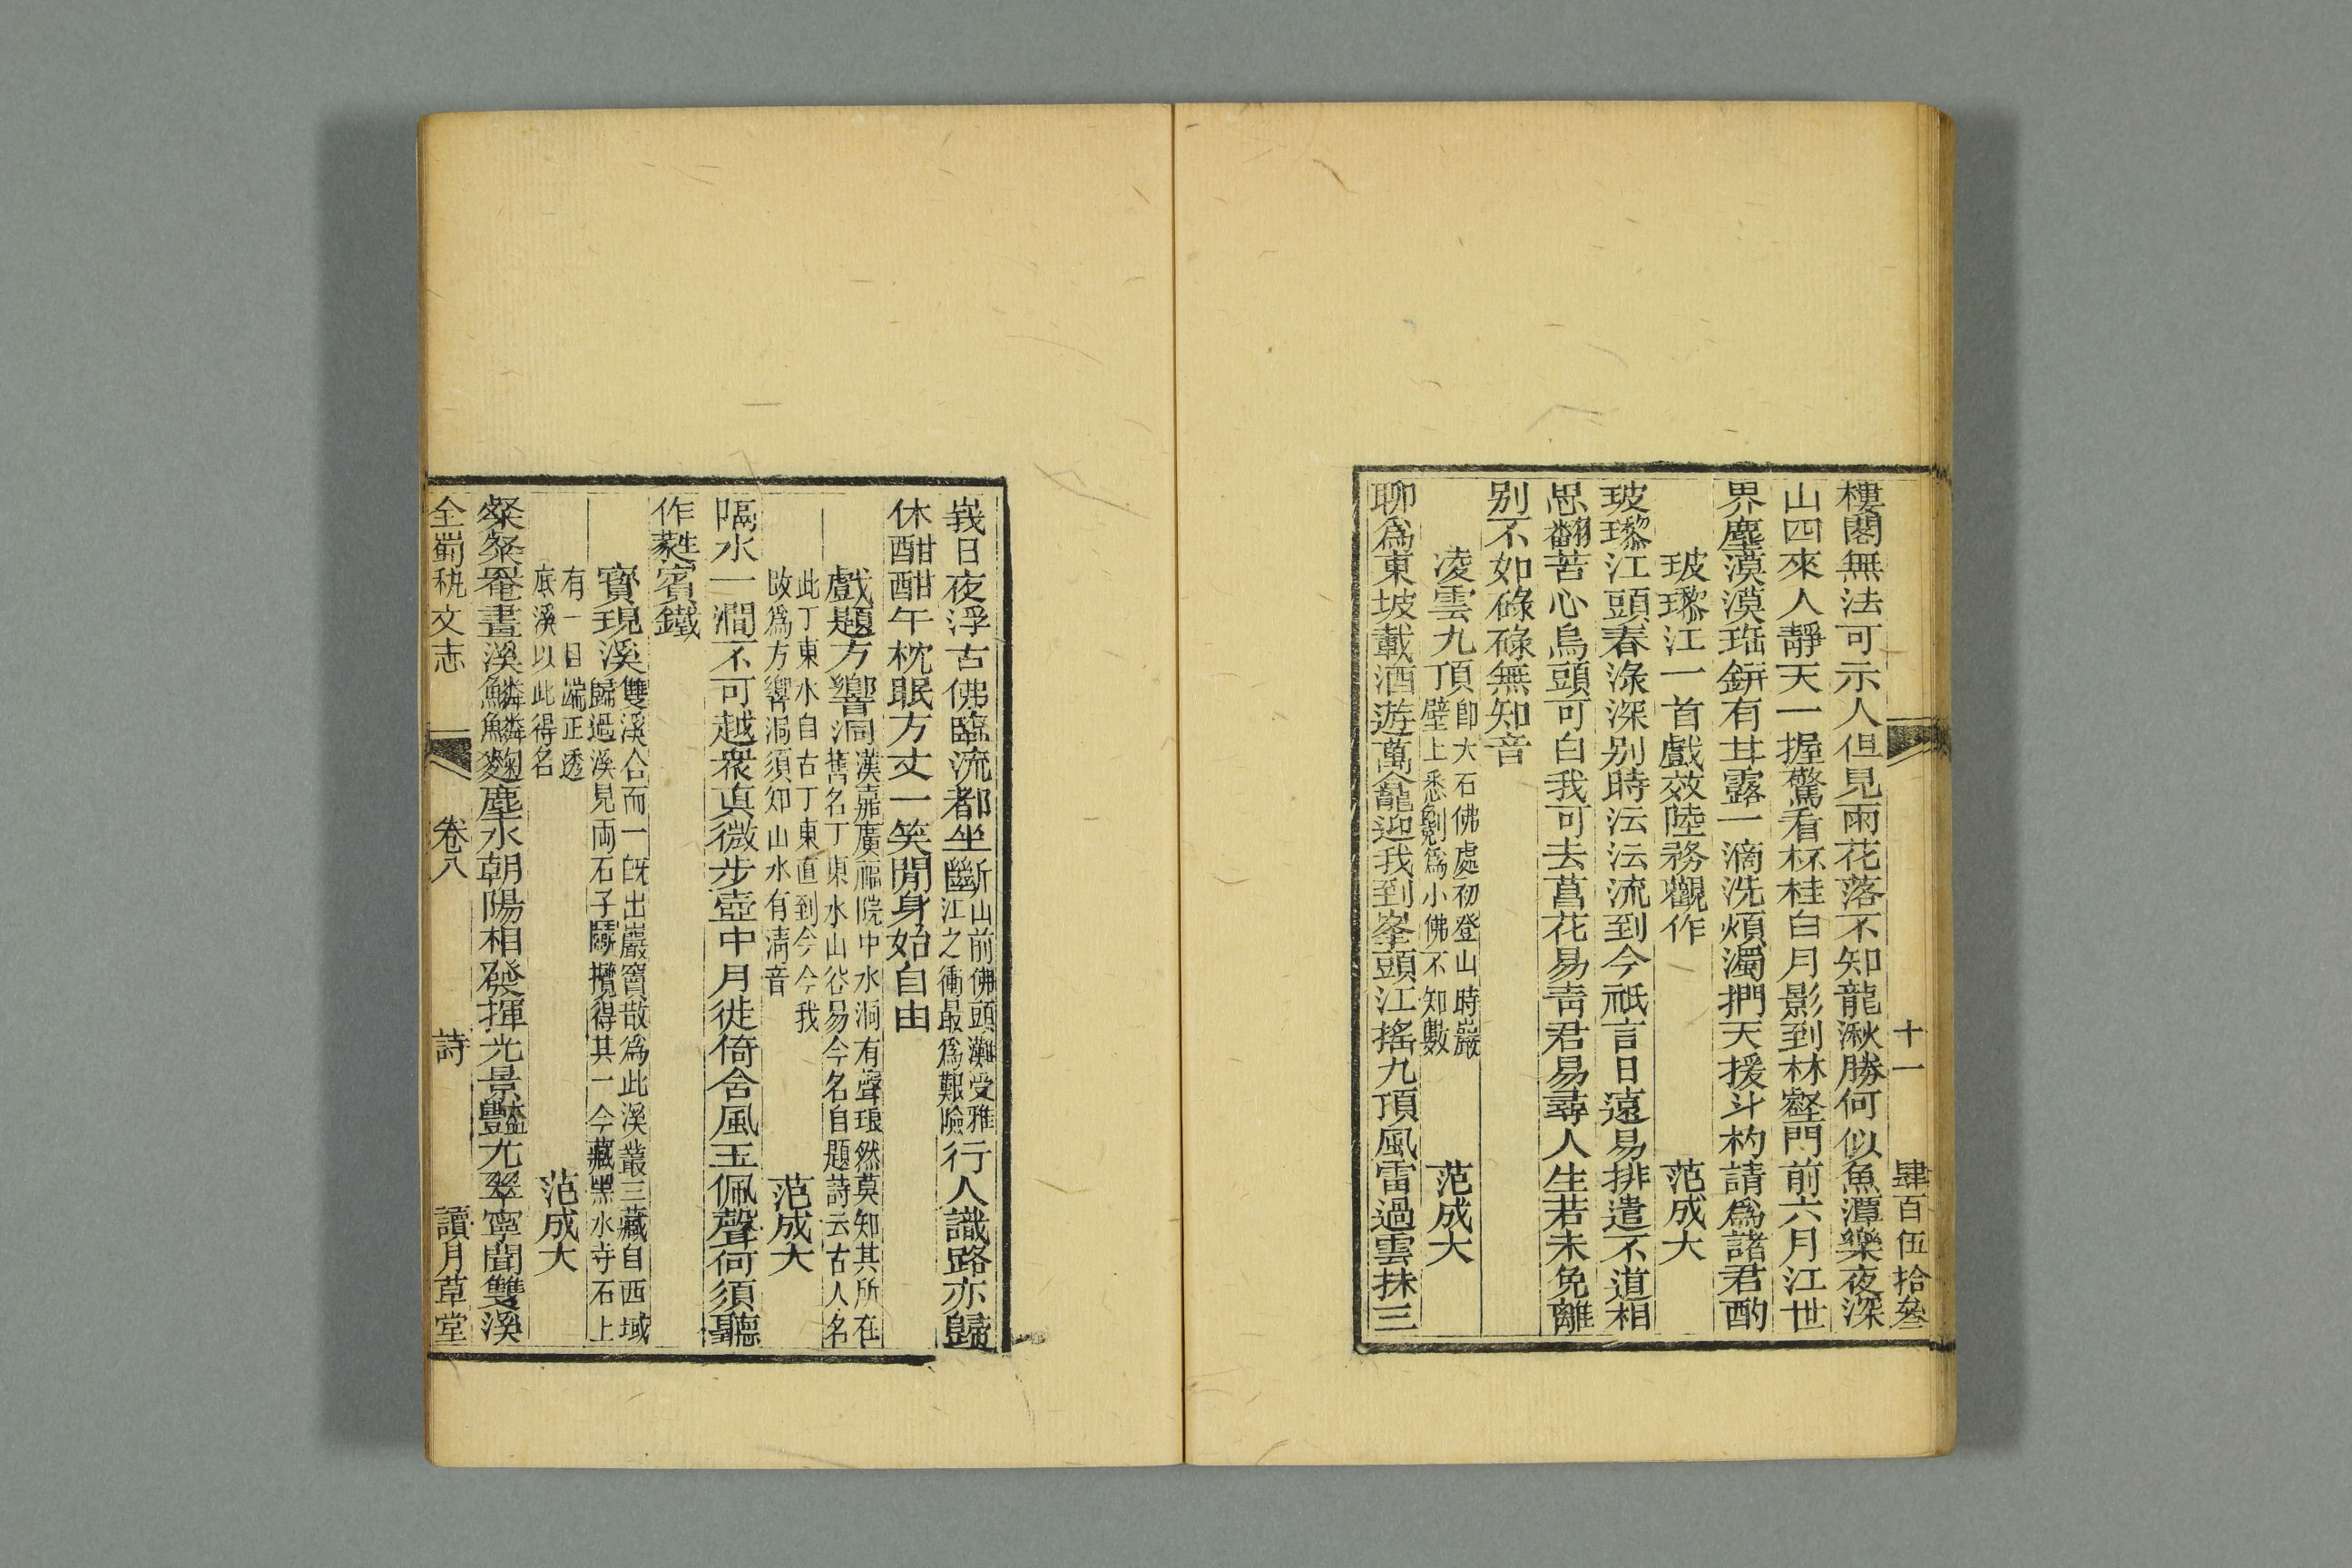 十一 肆百伍拾叄
樓閣無法可示人但見雨花落不知龍湫勝何似魚潭樂夜深
山四來人靜天一握驚看杯桂白月影到林壑門前六月江世
界塵漠漠珤缾有甘露一滴洗煩濁捫天援斗杓請爲諸君酌
玻瓈江一首戲效陸務觀作 范成大
玻瓈江頭春淥深别時沄沄流到今祇言日遠易排遣不道相
思翻苦心烏頭可白我可去菖花易靑君易尋人生若未免離
别不如碌碌無知音
凌雲九頂卽大石佛處初登山時巖壁上悉劖爲小佛不知數 范成大
聊爲東坡載酒遊萬龕迎我到峯頭江搖九頂風雷過雲抹三
峩日夜浮古佛臨流都坐斷山前佛頭灘受雅江之衝最爲艱險行人識路亦歸
休酣酣午枕眠方丈一笑閒身始自由
戲題方響洞漢嘉廣福院中水洞有聲琅然莫知其所在舊名丁東水山谷易今名自題詩云古人名
此丁東水自古丁東直到今今我改爲方響洞須知山水有淸音 范成大
隔水一澗不可越衆真微步壼中月徙倚含風玉佩聲何須聽
作蕤賓鐵
寳現溪雙溪合而一旣出巖竇散爲此溪叢三藏自西域歸過溪見兩石子鬭攬得其一今藏黑水寺石上
有一目端正透底溪以此得名 范成大
粲粲罨畫溪鱗鱗麴塵水朝陽相發揮光景豔尤翠寧聞雙溪
全蜀秇文志 卷八 詩 讀月草堂